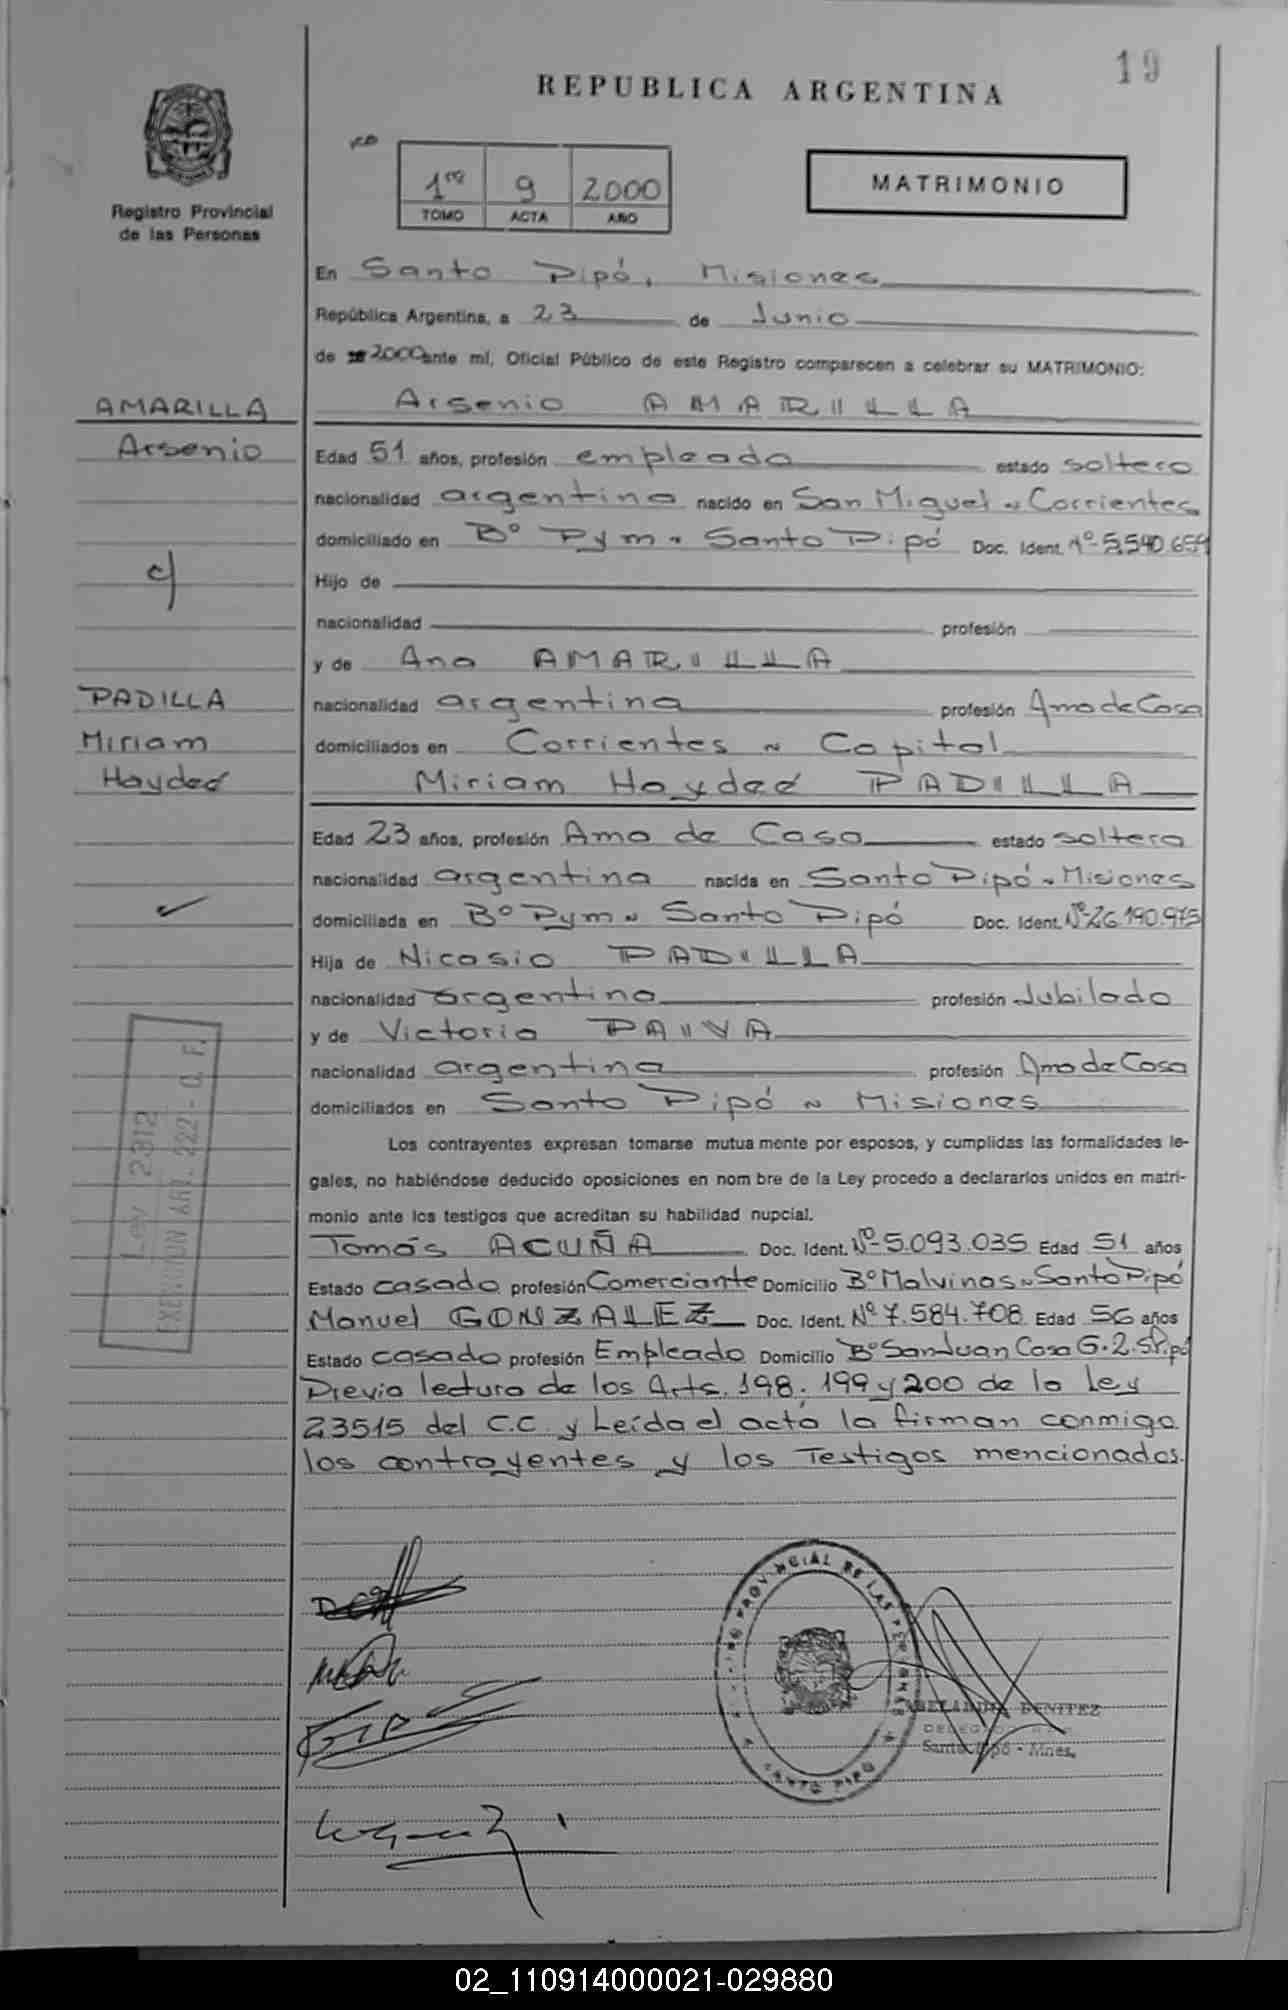 19
REPUBLICA ARGENTINA
Registro Provincial
de las Personas
1ro 9 2000
TOMO ACTA AÑO
MATRIMONIO
En Santo Pipó, Misiones
República Argentina, a 23 de Junio
de 2000 ante mí, Oficial Público de este Registro comparecen a celebrar su MATRIMONIO:
AMARILLA
Arsenio
c/
PADILLA
Miriam
Haydeé
Arsenio AMARILLA
Edad 51 años, profesión empleado estado soltero
nacionalidad argentina nacido en San Miguel ~ Corrientes
domiciliado en Bº Pym ~ Santo Pipó Doc. Ident. Nº 5.540.659
Hijo de
nacionalidad profesión
y de Ana AMARILLA
nacionalidad argentina profesión Ama de Casa
domiciliados en Corrientes ~ Capital
Miriam Haydeé PADILLA
Edad 23 años, profesión Ama de Casa estado soltera
nacionalidad argentina nacida en Santo Pipó ~ Misiones
domiciliada en Bº Pym ~ Santo Pipó Doc. Ident. Nº 26.190.975
Hija de Nicasio PADILLA
nacionalidad argentina profesión Jubilado
y de Victoria PAIVA
nacionalidad argentina profesión Ama de Casa
domiciliados en Santo Pipó ~ Misiones
Ley 2312
EXENCION ART. 222 - C. F.
Los contrayentes expresan tomarse mutua mente por esposos, y cumplidas las formalidades le-
gales, no habiéndose deducido oposiciones en nom bre de la Ley procedo a declararlos unidos en matri-
monio ante los testigos que acreditan su habilidad nupcial.
Tomás ACUÑA Doc. Ident. Nº 5.093.035 Edad 51 años
Estado casado profesión Comerciante Domicilio Bº Malvinas ~ Santo Pipó
Manuel GONZALEZ Doc. Ident. Nº 7.584.708 Edad 56 años
Estado casado profesión Empleado Domicilio Bº San Juan Casa G. 2. S. Pipó
Previa lectura de los Arts. 198. 199 y 200 de la Ley
23515 del C.C. y Leída el acta la firman conmigo
los contrayentes y los Testigos mencionados.
PROVINCIAL DE LAS PERSONAS
SANTO PIPO
ABELARDO BENITEZ
DELEGADO
Santo Pipó - Mnes.
02_110914000021-029880